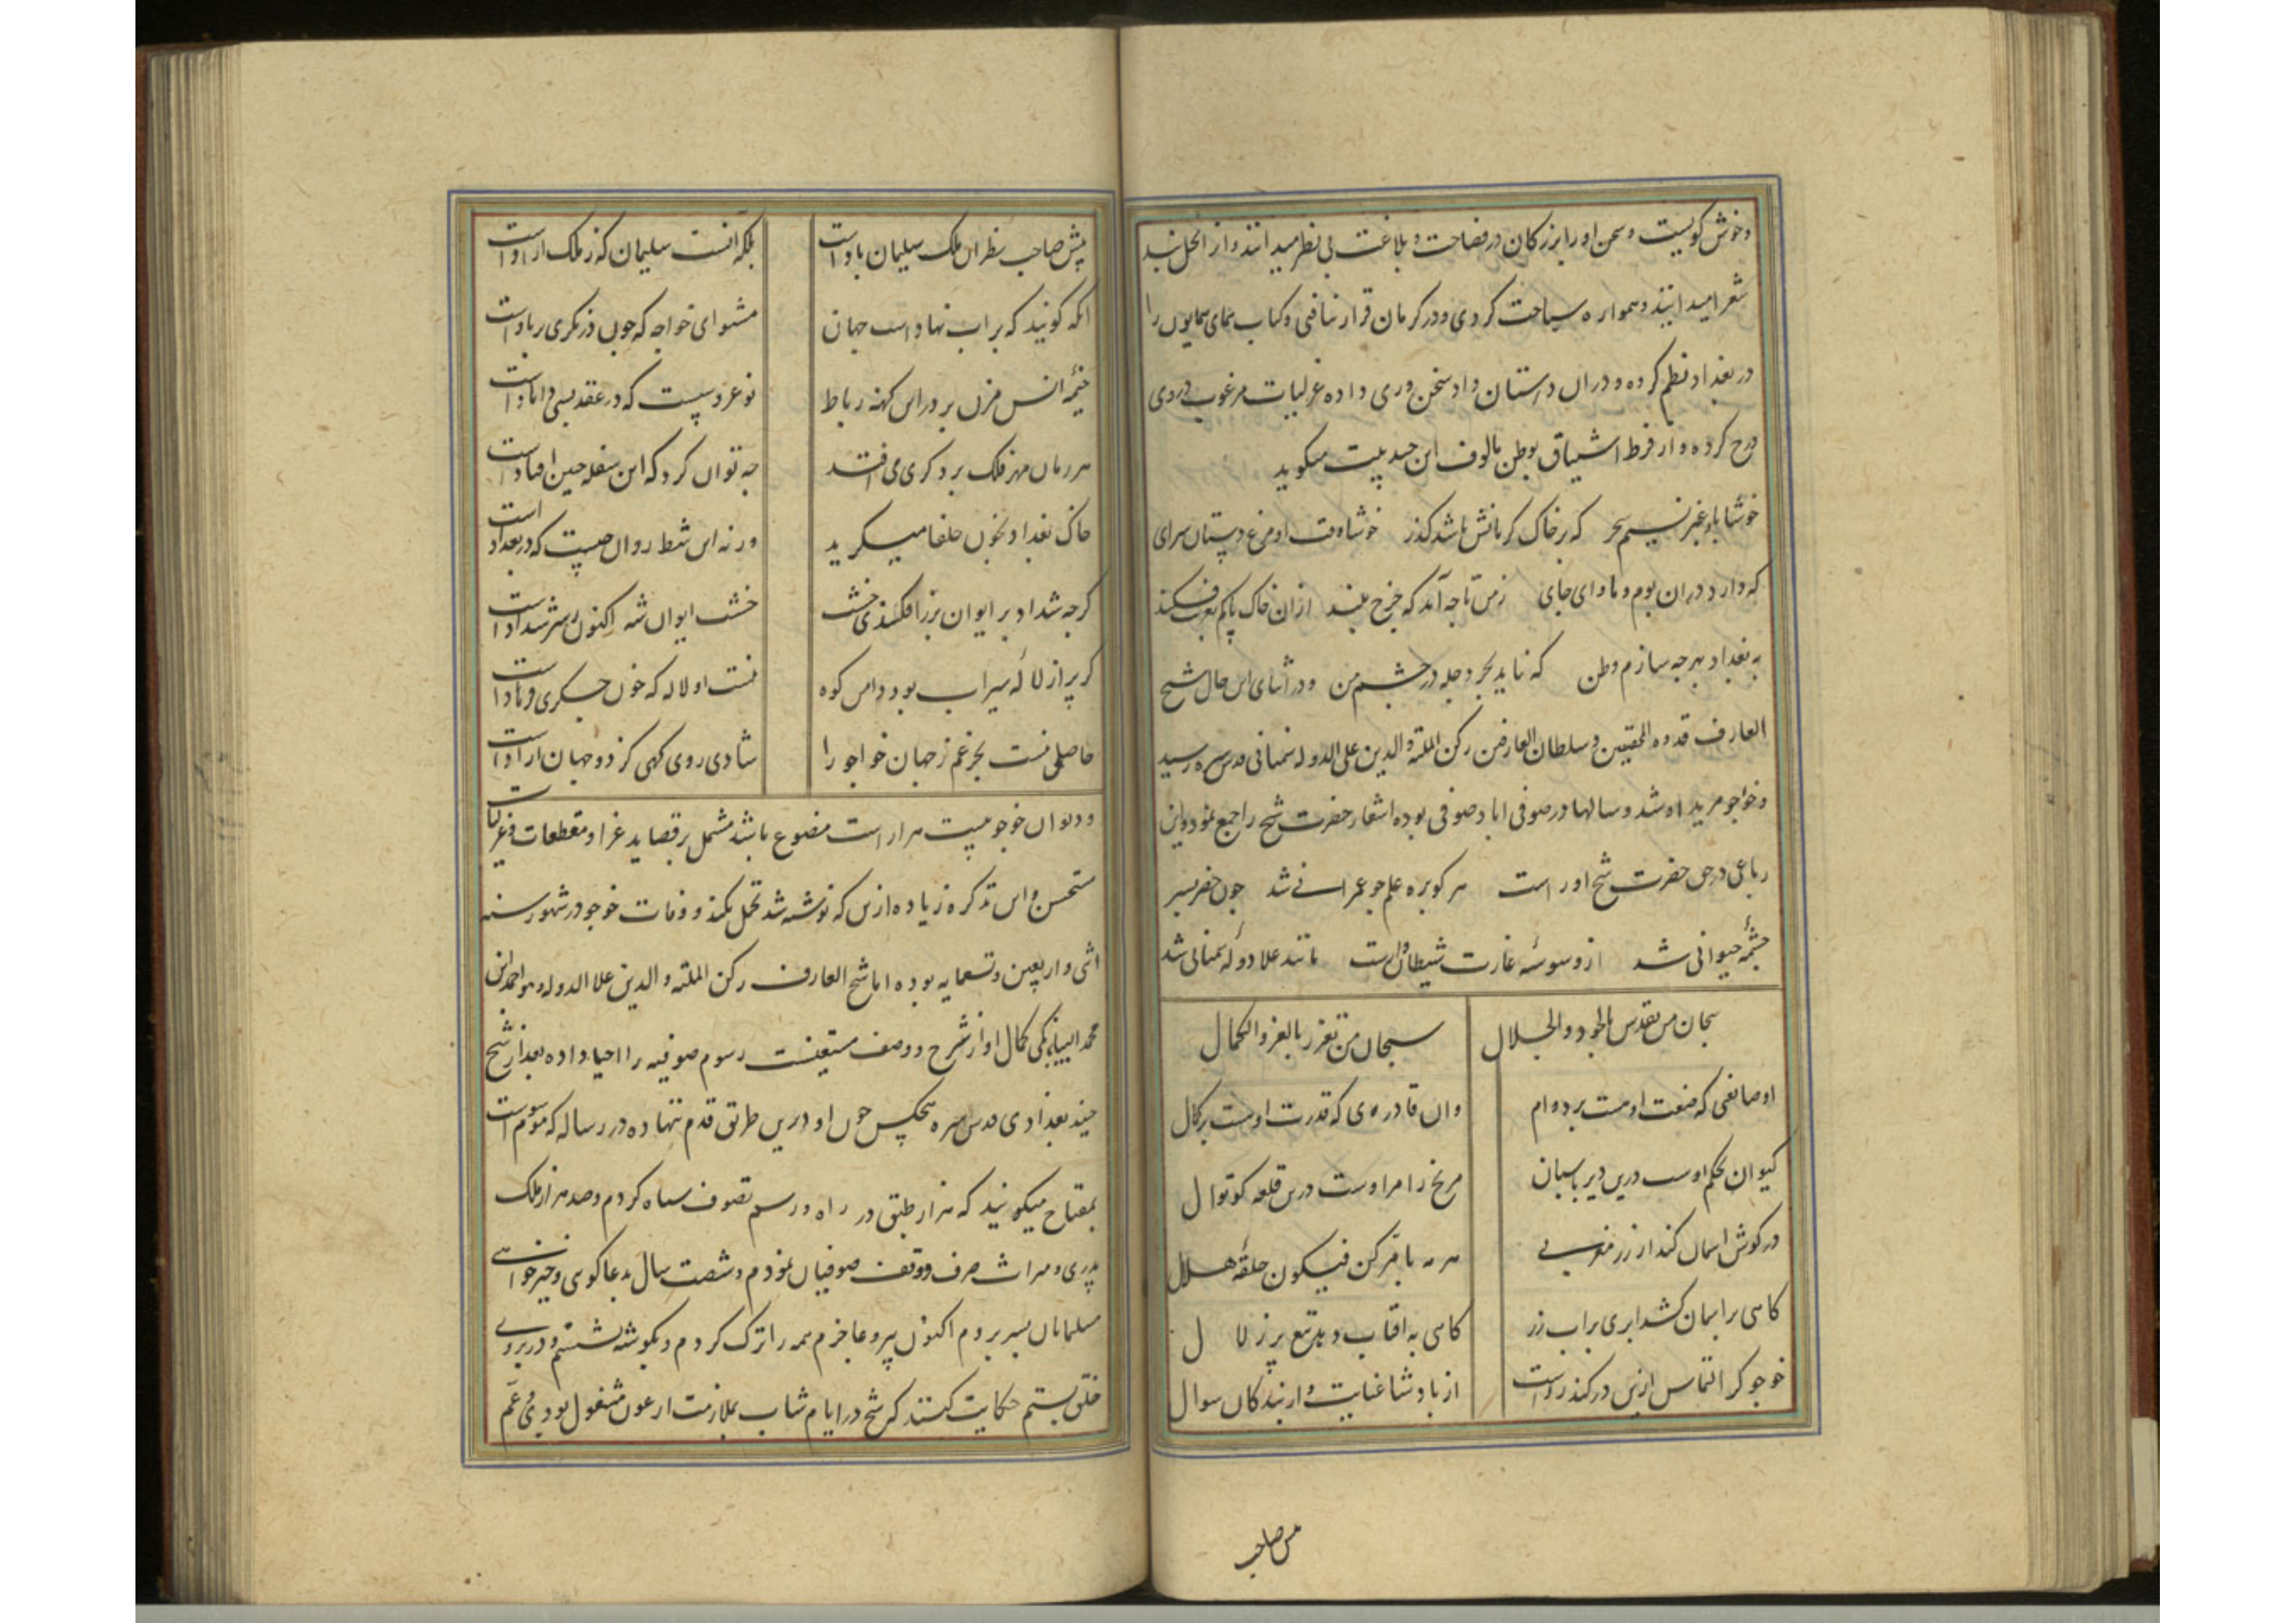 وخوش کویست و سخن او را بزرکان در فصاحت و بلاغت بی نظیر میدانند و از انحل بند
شعرا میدانند و همواره سیاحت کردی و در کرمان قرار نیافتی و کتاب همای همایون را
در بغداد نظم کرده و دران داستان داد سخن وری داده غزلیات مرغوب در وی
درج کرده و از فرط اشتیاق بوطن مالوف این چند بیت میکوید
خوشا باد عنبر نسیم سحر که بر خاک کرمانش باشد کذر خوشا وقت او مرغ دستان سرای
که دارد دران بوم و ماوای جای ز من تا چه آمد که چرخ بلند ازان خاک پاکم بغربت فکند
به بغداد بهر چه سازم وطن که ناید بجز دجله در چشم من و در اثنای این حال شیخ
العارف قدوه المحققین و سلطان العارفین رکن الملة والدین علی الدوله سمنانی قدس سره رسید
و خواجو مرید او شد و سالها در صوفی اباد صوفی بوده اشعار حضرت شیخ را جمع نمود و این
رباعی در حق حضرت شیخ او راست هر کو بره علی عمرانی شد چون خضر بسر
چشمهٔ حیوانی شد از وسوسهٔ غارت شیطان وارست مانند علا دولهٔ سمنانی شد
سبحان من تقدس بالجود والجلال سبحان من تعزز بالعز والکمال
او صانعی که صنعت اوست بر دوام وان قادری که قدرت اوست بر کمال
کیوان بحکم اوست درین دیر پاسبان مریخ را مر اوست درین قلعه کوتوال
در کوش اسمان کند از زر مغربی هر مه بامر کن فیکون حلقهٔ هلال
کاهی بر اسمان کشد ابری بر اب زر کاهی به افتاب دهد تیغ پر زلال
خوجو کر التماس ازین در کند رواست از بادشا عنایت و از بندکان سوال
پیش صاحب
پیش صاحب نظران ملک سلیمان باد است بلکه آنست سلیمان که ز ملک ازاد است
انکه کویند که بر اب نهاد است جهان مشنو ای خواجه که چون درنکری بر باد است
خیمهٔ انس مزن بر در این کهنه رباط نو عروسیست که در عقد بسی داماد است
هر زمان مهر فلک بر دکری می افتد چه توان کرد که این سفله چنین افتاد است
خاک بغداد بخون خلفا میکرید ورنه این شط روان چیست که در بغداد است
کرچه شداد بر ایوان بزر افکندی خشت خشت ایوان شه اکنون ز سر شداد است
کر پر از لالهٔ سیراب بود دامن کوه نیست او لاله که خون جکر فرهاد است
حاصلی نیست بجز غم ز جهان خواجو را شادی روی کهی کز دو جهان ازاد است
و دیوان خوجو بیست هزار است مصنوع باشد مشتمل بر قصاید غرا و مقطعات و غزلیات
مستحسن و این تذکره زیاده ازین که نوشته شد تحمل نکند و وفات خوجو در شهور سنه
اثنی و اربعین و تسعمایه بوده اما شیخ العارف رکن الملة والدین علا الدوله و هو احمد بن
محمد البیابانکی کمال او از شرح و وصف مستغنیست رسوم صوفیه را احیا داده بعد از شیخ
جنید بغدادی قدس سره هیچکس چون او درین طریق قدم ننهاده در رساله که موسوم است
بمفتاح میکویند که هزار طبق در راه و رسم تصوف سیاه کردم و صد هزار ملک
پدری و میراث صرف و وقف صوفیان نمودم و شصت سال بدعا کویی و خیرخواهی
مسلمانان بسر بردم اکنون پیر و عاجزم همه را ترک کردم و بکوشه نشستم و در بروی
خلق بستم حکایت کنند که شیخ در ایام شباب بملازمت ارغون مشغول بودی و عم